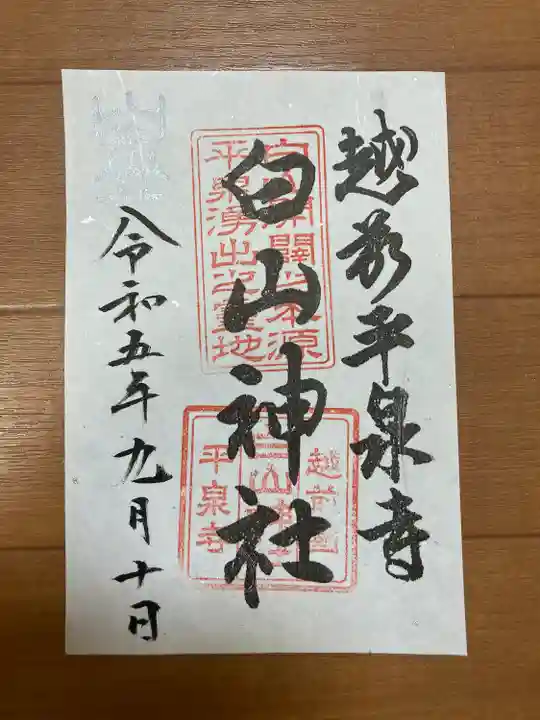 越前平泉寺
白山神社
令和五年九月十日
白山開闢出本源
平泉湧出之霊地
越前國
白山神社
平泉寺